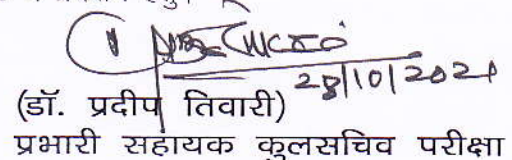 28/10/2021
(डॉ. प्रदीप तिवारी)
प्रभारी सहायक कुलसचिव परीक्षा